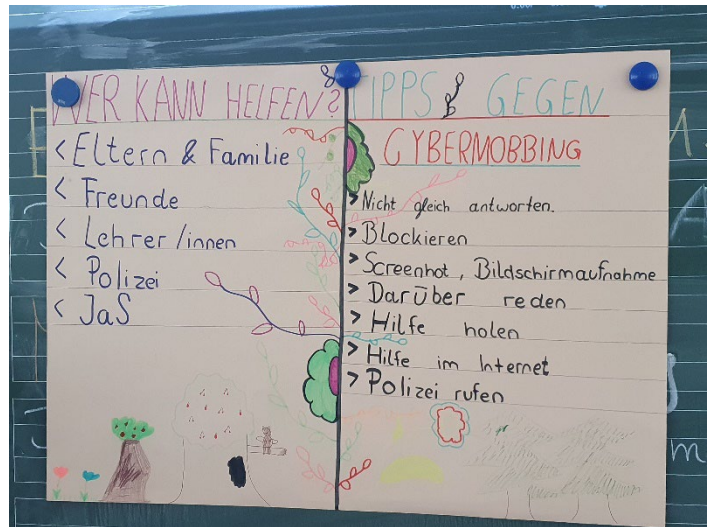 WER KANN HELFEN?
< Eltern & Familie
< Freunde
< Lehrer/innen
< Polizei
< JaS
TIPPS GEGEN
CYBERMOBBING
> Nicht gleich antworten.
> Blockieren
> Screenhot, Bildschirmaufnahme
> Darüber reden
> Hilfe holen
> Hilfe im Internet
> Polizei rufen